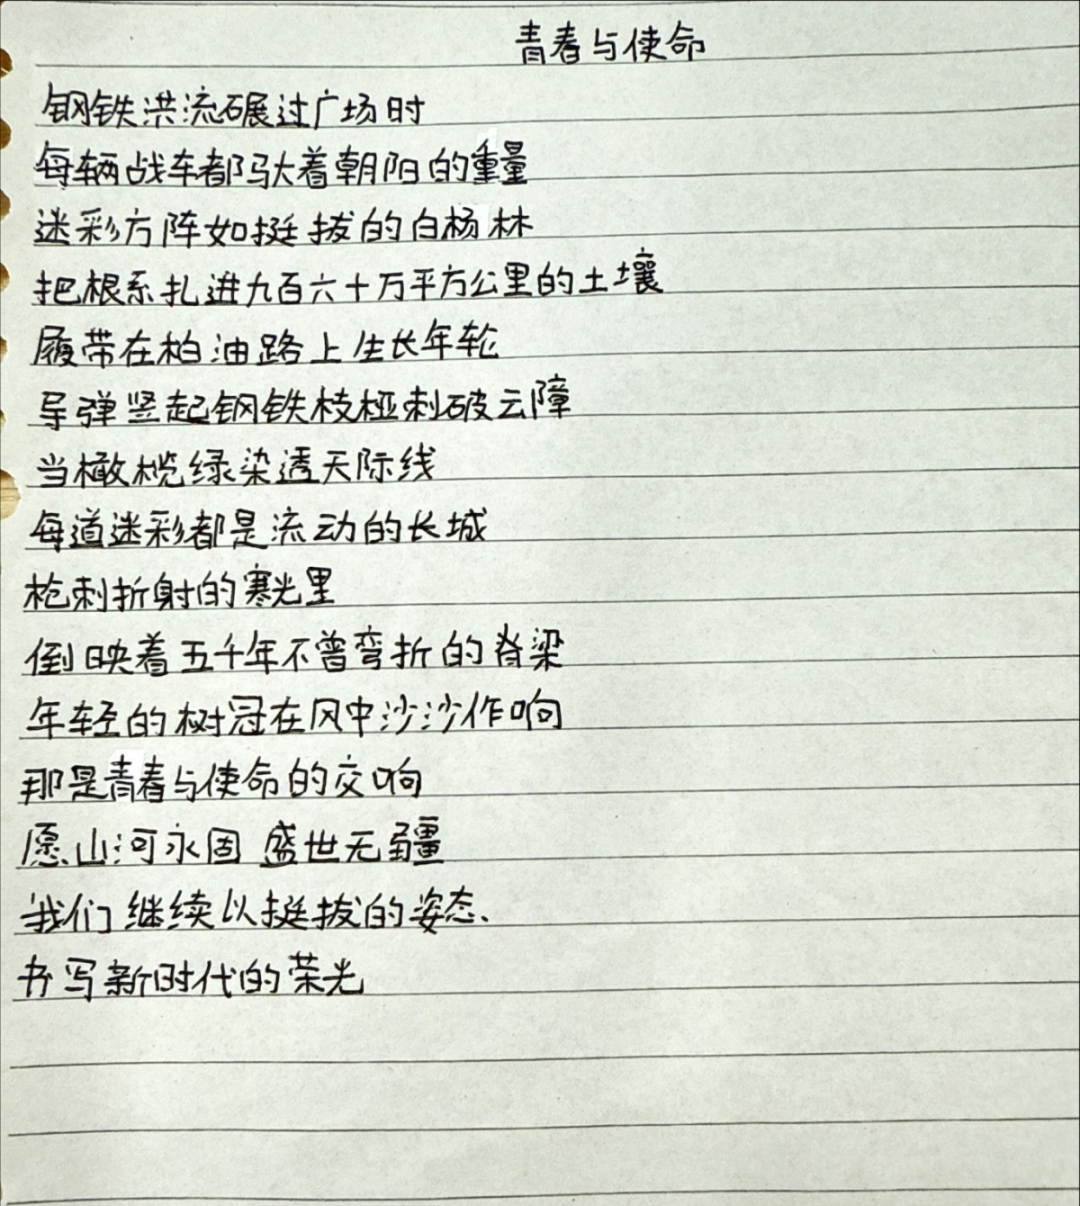 青春与使命
钢铁洪流碾过广场时
每辆战车都驮着朝阳的重量
迷彩方阵如挺拔的白杨林
把根系扎进九百六十万平方公里的土壤
履带在柏油路上生长年轮
导弹竖起钢铁枝桠刺破云障
当橄榄绿染透天际线
每道迷彩都是流动的长城
枪刺折射的寒光里
倒映着五千年不曾弯折的脊梁
年轻的树冠在风中沙沙作响
那是青春与使命的交响
愿山河永固 盛世无疆
我们继续以挺拔的姿态、
书写新时代的荣光